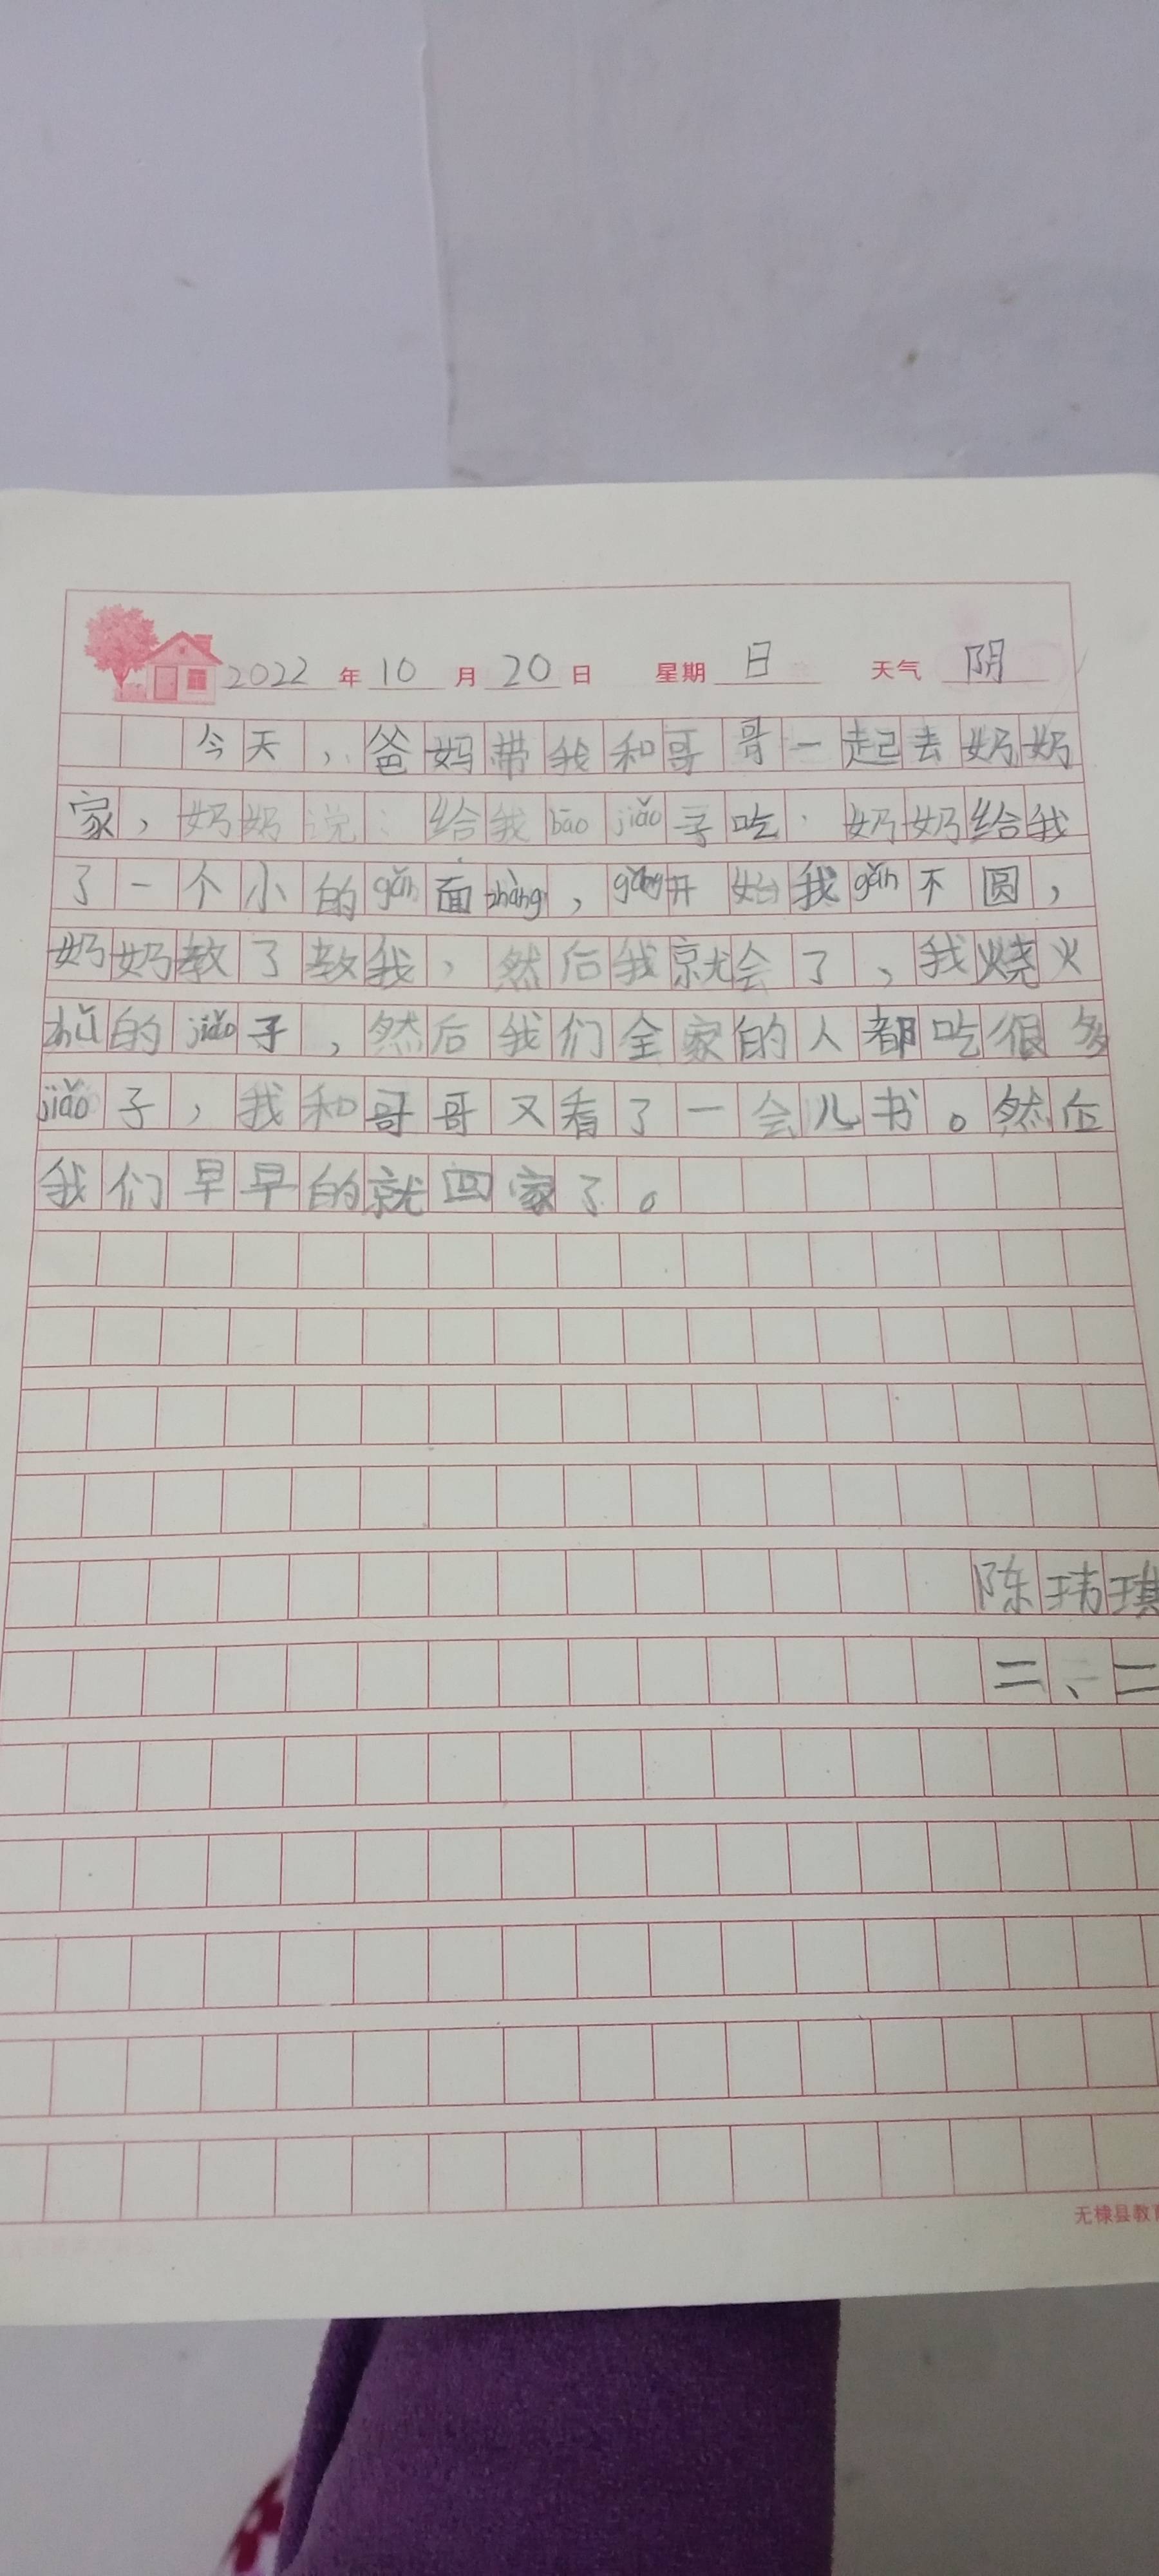 2022年10月20日 星期日 天气阴
今天，爸妈带我和哥哥一起去奶奶
家，奶奶说：给我bāo jiǎo子吃．奶奶给我
了一个小的gǎn面zhàng，gāng开始我gǎn不圆，
奶奶教了教我，然后我就会了，我烧火
zhǔ的jiǎo子，然后我们全家的人都吃很多
jiǎo子，我和哥哥又看了一会儿书。然后
我们早早的就回家了。
陈玮琪
二、二
无棣县教育